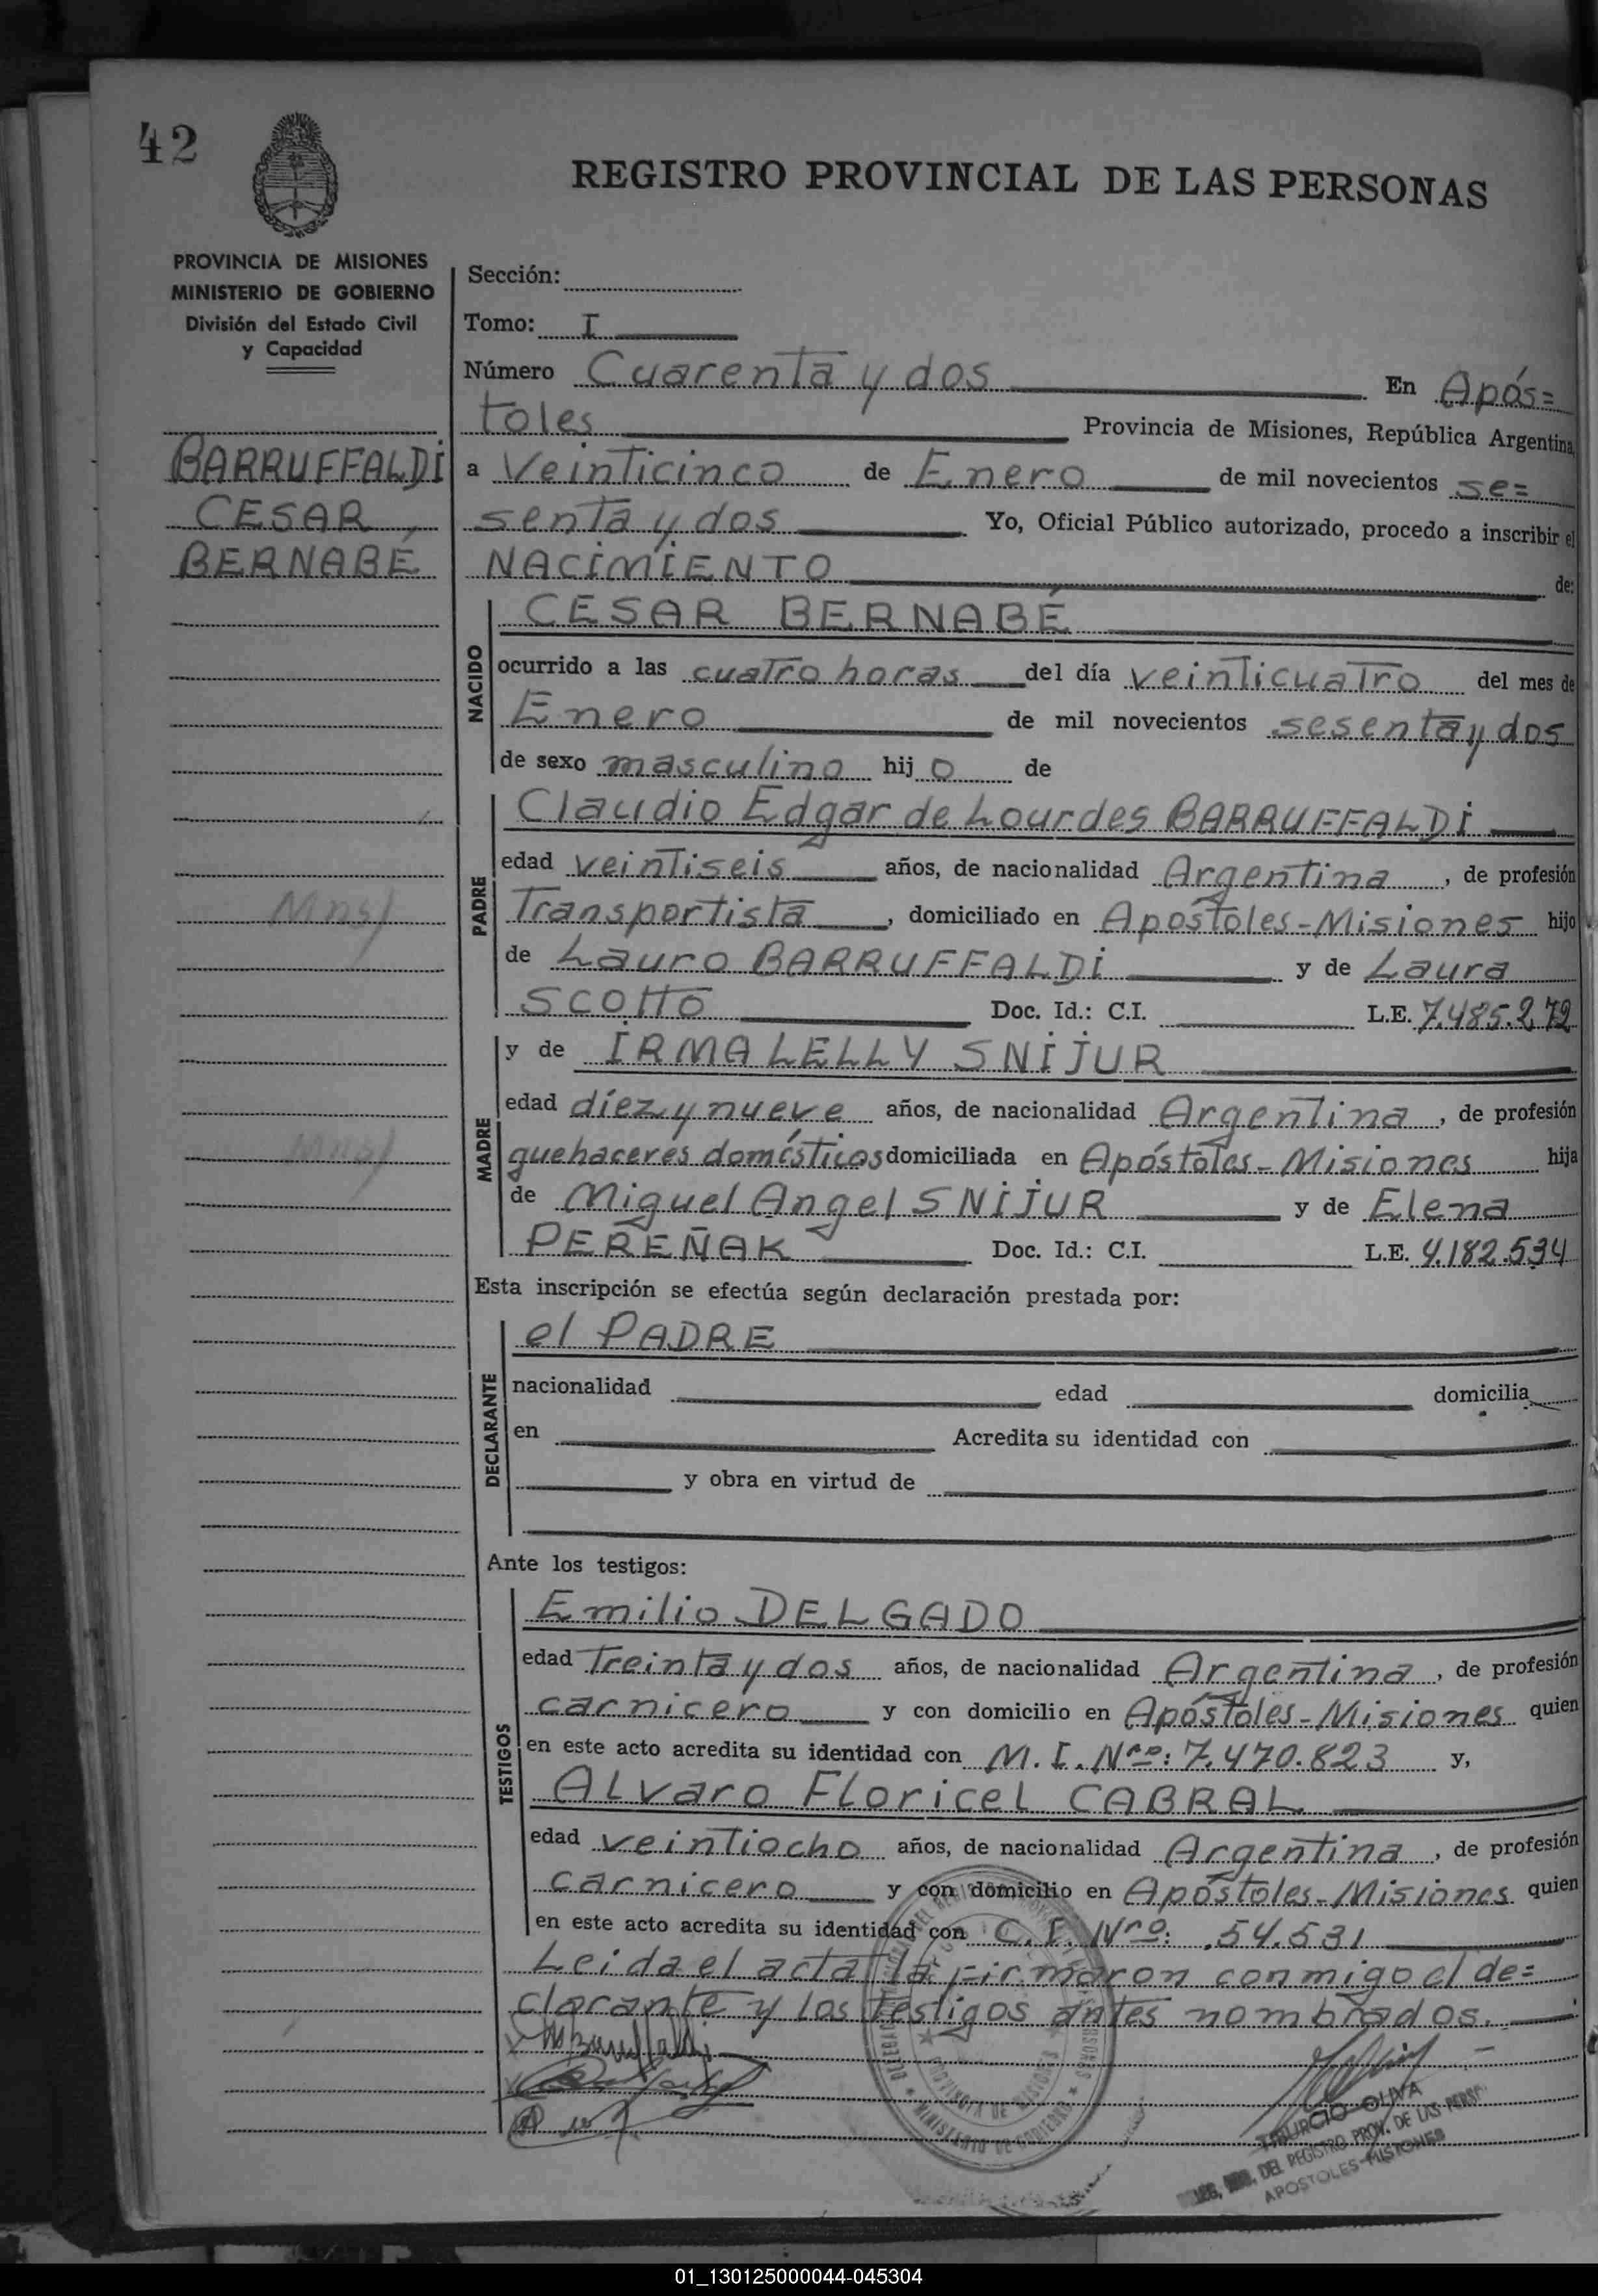 42
REGISTRO PROVINCIAL DE LAS PERSONAS
PROVINCIA DE MISIONES
MINISTERIO DE GOBIERNO
División del Estado Civil
y Capacidad
BARRUFFALDI
CESAR
BERNABÉ
Sección:
Tomo: I
Número Cuarenta y dos En Após=
toles Provincia de Misiones, República Argentina,
a Veinticinco de Enero de mil novecientos se=
senta y dos Yo, Oficial Público autorizado, procedo a inscribir el
NACIMIENTO de:
NACIDO
CESAR BERNABÉ
ocurrido a las cuatro horas del día veinticuatro del mes de
Enero de mil novecientos sesenta y dos
de sexo masculino hij o de
PADRE
Claudio Edgar de Lourdes BARRUFFALDI
edad veintiseis años, de nacionalidad Argentina, de profesión
Transportista, domiciliado en Apostoles-Misiones hijo
de Lauro BARRUFFALDI y de Laura
SCOTTO Doc. Id.: C.I. L.E. 7.485.272
MADRE
y de IRMA LELLY SNIJUR
edad diez y nueve años, de nacionalidad Argentina, de profesión
quehaceres domésticos domiciliada en Apóstoles-Misiones hija
de Miguel Angel SNIJUR y de Elena
PEREÑAK Doc. Id.: C.I. L.E. 4.182.534
Esta inscripción se efectúa según declaración prestada por:
DECLARANTE
el PADRE
nacionalidad edad domicilia
en Acredita su identidad con
y obra en virtud de
Ante los testigos:
TESTIGOS
Emilio DELGADO
edad Treinta y dos años, de nacionalidad Argentina, de profesión
carnicero y con domicilio en Apóstoles-Misiones quien
en este acto acredita su identidad con M.I. Nro: 7.470.823 y,
ALvaro Floricel CABRAL
edad veintiocho años, de nacionalidad Argentina, de profesión
carnicero y con domicilio en Apóstoles-Misiones quien
en este acto acredita su identidad con C.I. Nro: .54.531
Leida el acta la firmaron conmigo el de=
clarante y los testigos antes nombrados.
TIBURCIO OLIVA
DEL REGISTRO PROV. DE LAS PERS.
APOSTOLES-MISIONES
01_130125000044-045304